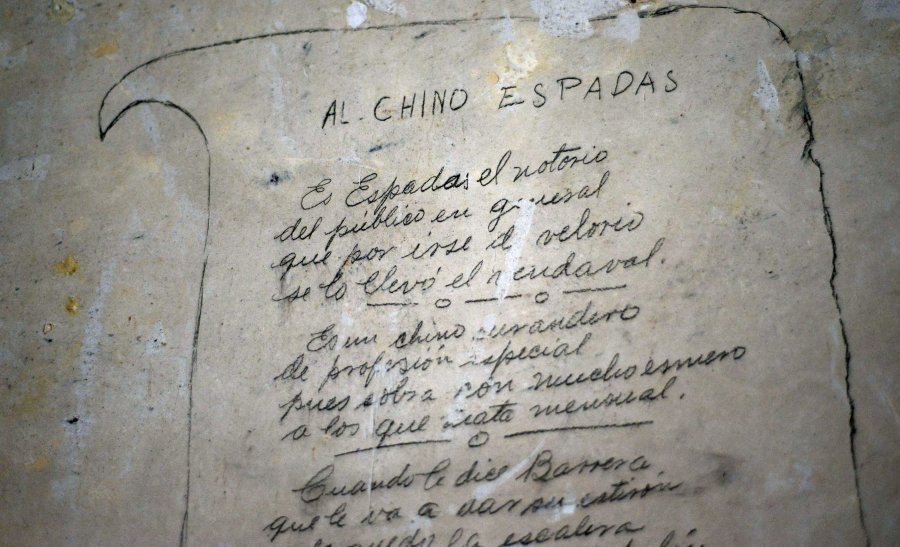 AL CHINO ESPADAS
Es Espadas el notorio
del público en general
que por irse al velorio
se lo llevó el vendaval.
Es un chino curandero
de profesión especial
pues cobra con mucho esmero
a los que mata mensual.
Cuando le dice Barrera
que le va a dar su estirón
quedo la escalera